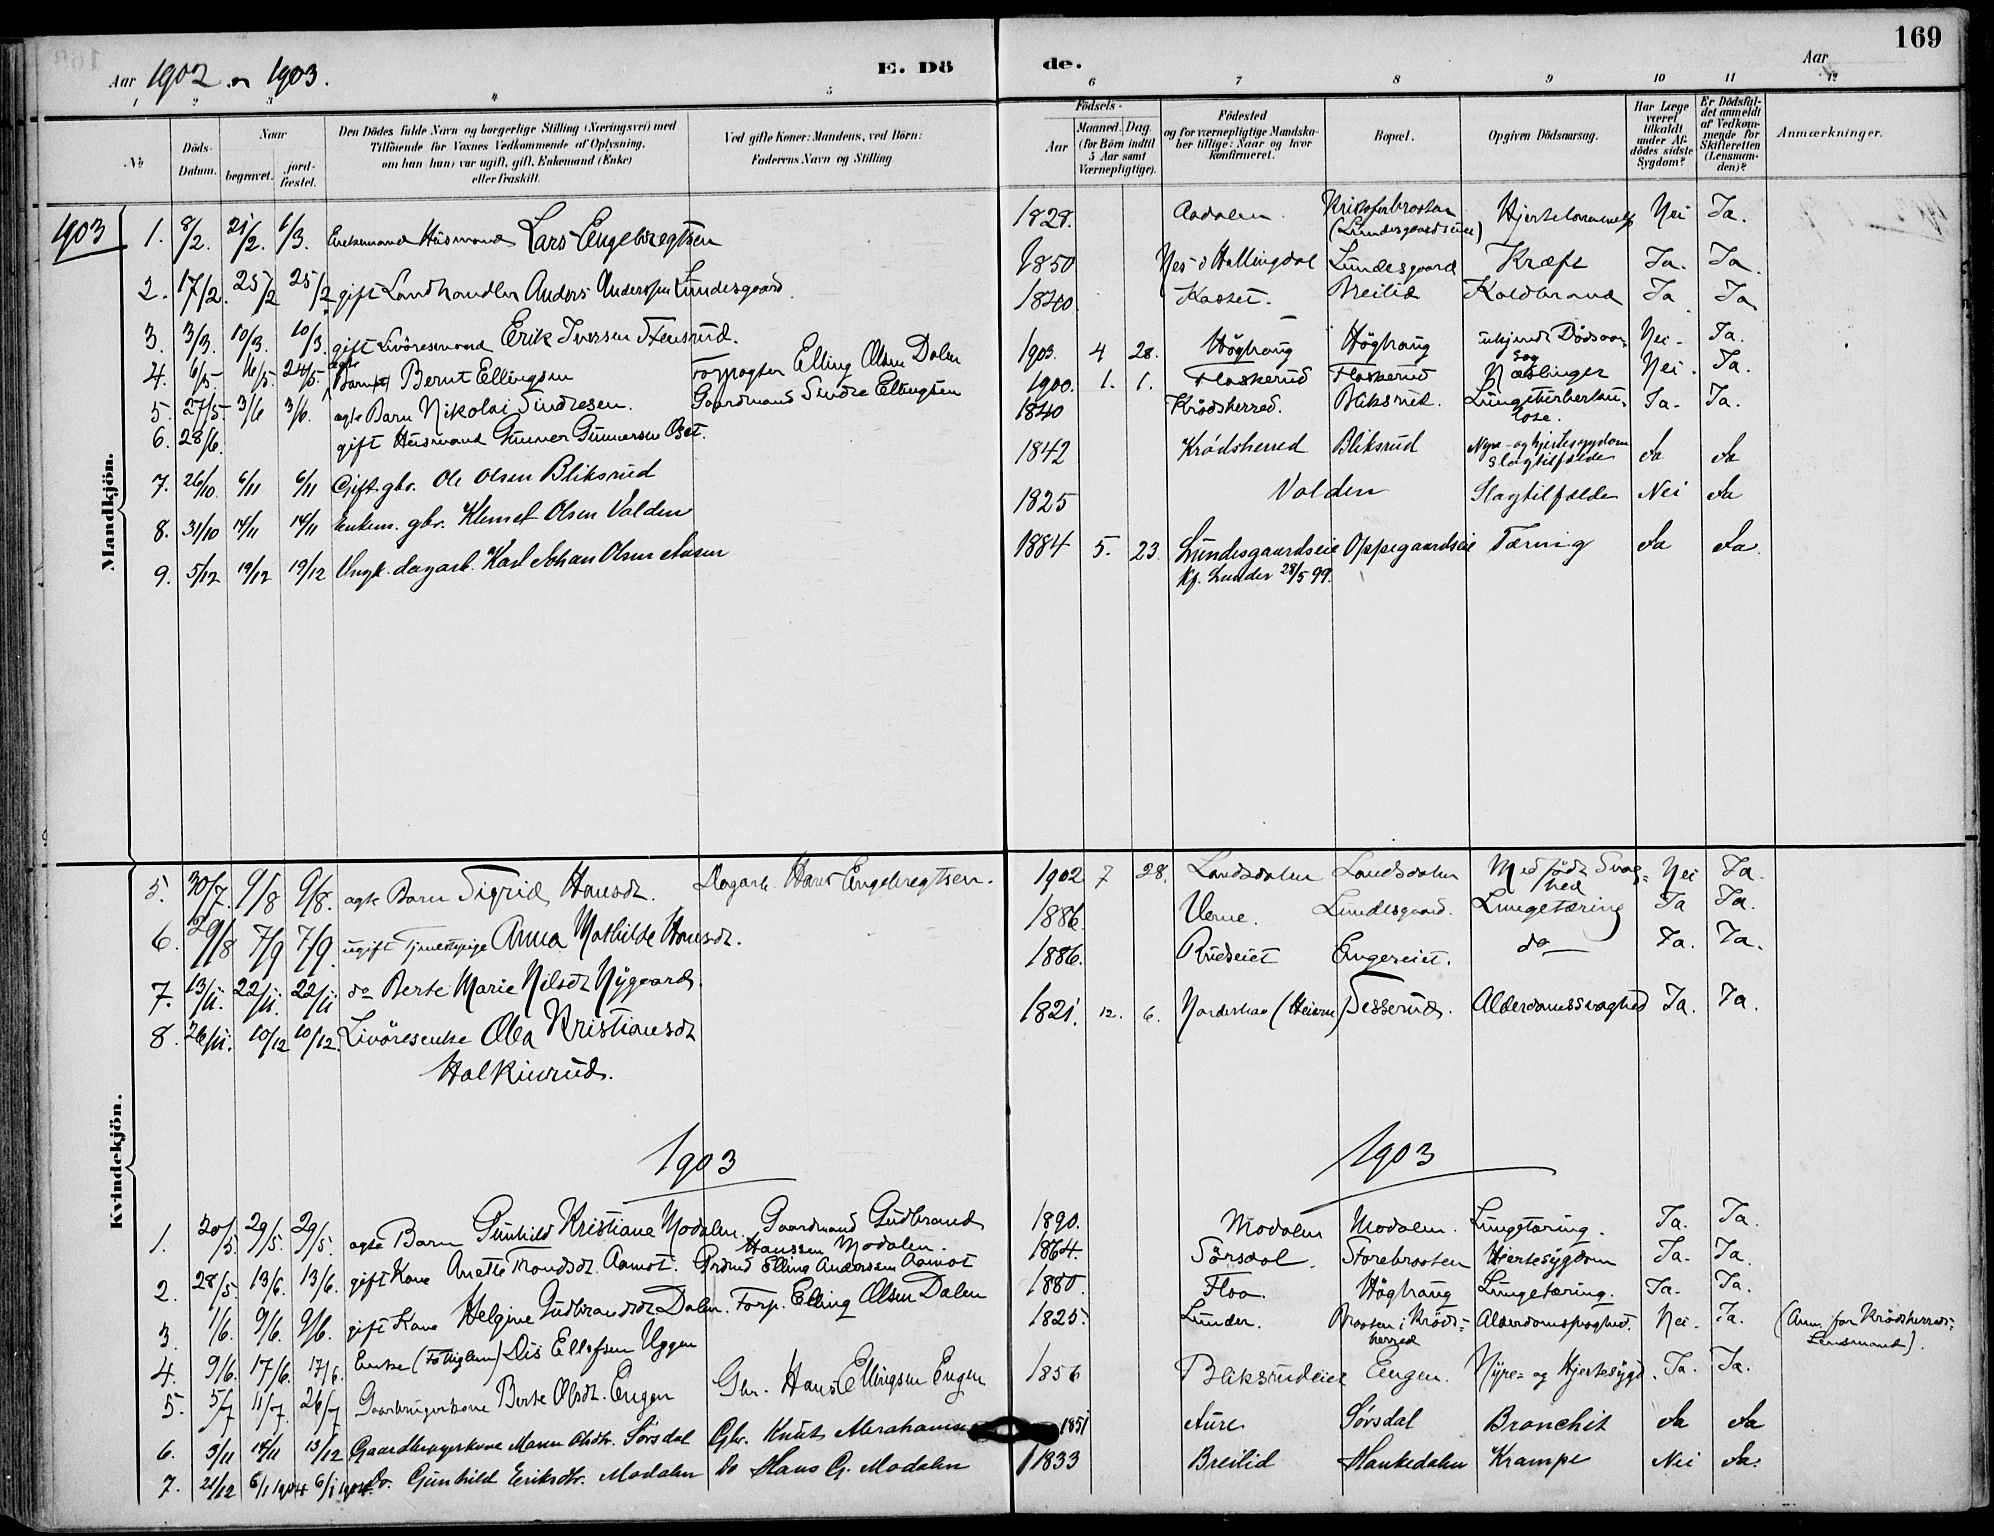 169
Aar 1902 og 1903.
E. Dö
de.
Aar
1 2 3 4 5 6 7 8 9 10 11 12
No
Döds-Datum.
Naar
begravet.
jord-fæstet.
Den Dödes fulde Navn og borgerlige Stilling (Næringsvei) med
Tilföiende for Voxnes Vedkommende af Oplysning,
om han (hun) var ugift, gift, Enkemand (Enke)
eller fraskilt.
Ved gifte Koner: Mandens, ved Börn:
Faderens Navn og Stilling
Födsels-
Aar
Maaned. Dag
(for Börn indtil
5 Aar samt
Værnepligtige).
Födested
og for værnepligtige Mandska-
ber tillige: Naar og hvor
konfirmeret.
Bopæl.
Opgiven Dödsaarsag.
Har Læge
været
tilkaldt
under Af-
dödes sidste
Sygdom?
Er Dödsfal-
det anmeldt
af Vedkom-
mende for
Skifteretten
(Lensman-
den)?
Anmærkninger.
1903
Mandkjön.
1. 8/2. 21/2. 1/3. Enkemand Husmand Lars Engebregtsen 1828. Aadalen. Kristofferbraaten (Lundesgaardseie) Nei Ja.
2. 17/2. 25/2 25/2. gift Landhandler Anders Anderssen Lundesgaard. 1850 Nes i Hallingdal Lundesgaard Kræft Ja. Ja.
3. 3/3. 10/3. 10/3. gift Livöresmand Erik Iversen Stensrud. 1840. Breilid Koldbrand Ja Ja
4. 6/5. 16/5. 24/5. ægte Barn Bernt Ellingsen Forpagter Elling Olsen Dalen 1903. 4 28. Höghaug Höghaug ukjendt Dödsaarsag Nei. Ja.
5. 27/5 3/6 3/6. ægte Barn Nikolai Sindresen. Gaardmand Sindre Ellingsen 1900. 1. 1. Flaskerud Flaskerud Næslinger Nei. Ja.
6. 28/6. gift Husmand Gunner Gunnersen 1840 Krödsherred. Bliksrud. Lungetuberkulose. Ja. Ja.
7. 26/10. 6/11 6/11 Gift. gbr. Ole Olsen Bliksrud 1842 Krödsherred Bliksrud Nyre- og hjertesygdom Slagtilfælde Ja Ja
8. 31/10 14/11 14/11 Enkem. gbr. Klemet Olsen Valden 1825 Valden Slagtilfælde Nei Ja
9. 5/12 19/12 19/12 Ungk. dagarb. Karl Johan Olsen Aasen 1884 5. 23. Lundesgaardseie Oppegaardseie Tæring Ja Ja.
Kf. Lunder 28/5 99.
Kvindekjön.
5. 30/7. 9/8 9/8. ægte Barn Sigrid Hansdt. Dagarb. Hans Engebregtsen. 1902 7 28. Landsdalen Landsdalen Medfödt Svaghed Nei Ja.
6. 29/8 7/9 7/9. ugift Tjenestepige Anna Mathilde Hansdt. 1886. Verne. Lundesgaard. Lungetæring Ja Ja.
7. 13/11. 22/11. 22/11 do Berte Marie Nilsdt Nygaard. 1886. Rudseiet Engereiet. do Ja. Ja.
8. 26/11. 10/12 10/12. Livöresenke Olea Kristiansdt 1821. 12. 6. Norderhov (Heieren) Tesserud. Alderdomssvaghed Ja. Ja.
Halkinrud.
1903
1903
1. 20/5 29/5. 29/5. ægte Barn Gunhild Kristiane Modalen. Gaardmand Gudbrand Hanssen Modalen. 1890. Modalen Modalen. Lungetæring. Ja. Ja.
2. 28/5. 13/6. 13/6. gift Kone Anette Trondsdt. Aamot. Grdmd Elling Anderssen Aamot 1864. Sörsdal. Storebraaten Hjertesygdom Ja. Ja
3. 1/6. 9/6. 9/6. gift Kone Helgine Gudbrandsdt Dalen. Forp. Elling Olsen Dalen 1880. Floa. Höghaug Lungetæring. Ja. Ja.
4. 9/6. 17/6. 17/6. Enke (Fattiglem) Lis Ellefsen Uggen 1825. Lunder. Braaten i Krödsherred Alderdomssvaghed. Nei. Ja. (Anm. for Krödsherreds Lensmand).
5. 5/7 11/7. 26/7 Gaardbrugerkone Berte Olsdt. Engen Gbr. Hans Ellingsen Engen 1856 Bliksrudeie Engen. Nyre- og Hjertesygd. Ja. Ja.
6. 3/11 14/11 13/12 Gaardbrugerkone Maren Olsdtr. Sörsdal Gbr. Knut Abrahamsen 1851 Aure Sörsdal Bronchit Ja Ja
7. 21/12 6/1 1904 6/1 1904. Do. Gunhild Eriksdtr. Modalen Do Hans G. Modalen 1833 Breilid Haukedalen Krampe Nei Ja.